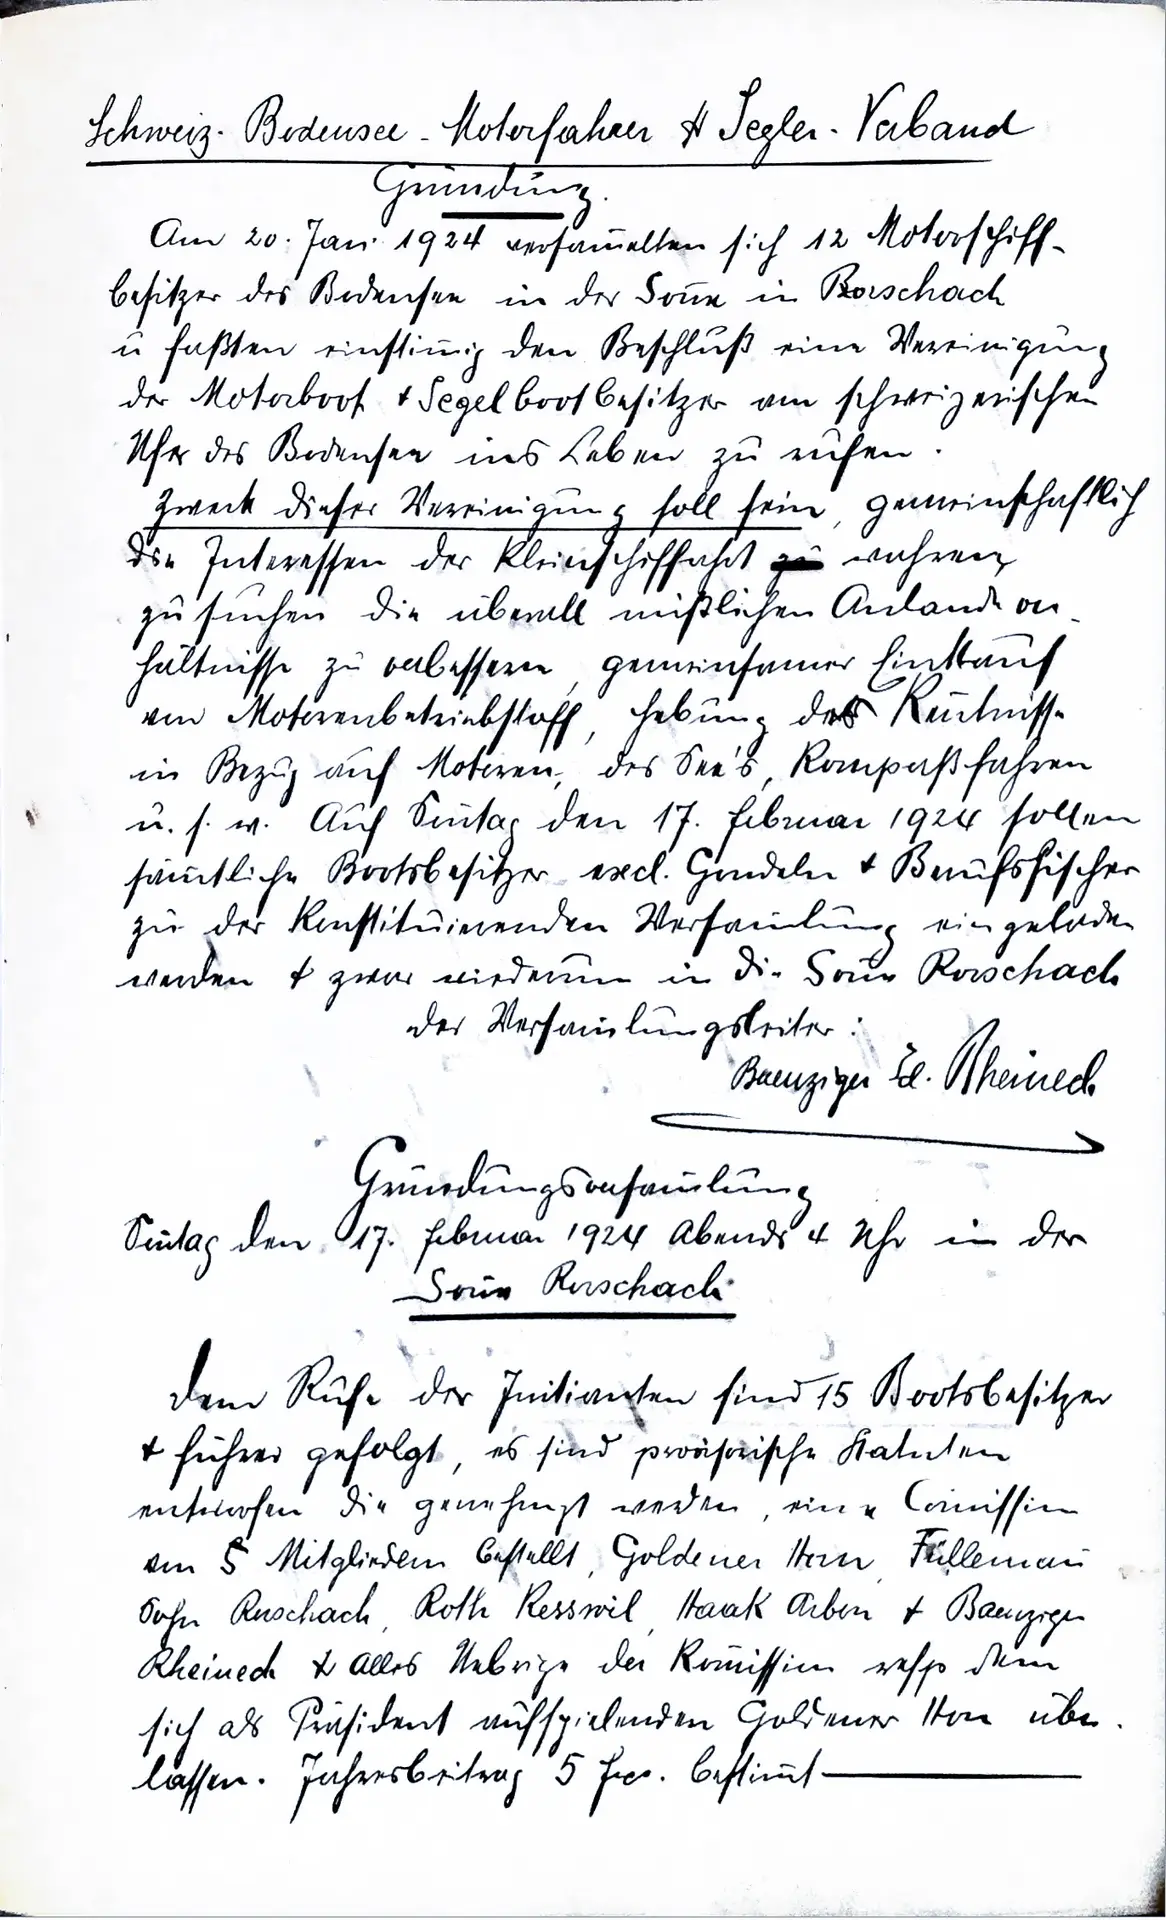 Schweiz. Bodensee-Motorfahrer & Segler-Verband
Gründung.
Am 20. Jan. 1924 versam̄elten sich 12 Motorschiff-
besitzer des Bodensee in der Son̄e in Rorschach
u faßten einstim̄ig den Beschluß eine Vereinigung
der Motorboot & Segelbootbesitzer am schweizerischen
Ufer des Bodensee ins Leben zu rufen.
Zweck dieser Vereinigung soll sein, gemeinschaftlich
die Interessen der Kleinschiffahrt zu wahren,
zu suchen die überall mißlichen Anlande ver-
hältnisse zu verbessern, gemeinsamer Einkauf
von Motorenbetriebstoff, Hebung der Ken̄tnisse
in Bezug auf Motoren, des See's, Kompaßfahren
u. s. w. Auf Son̄tag den 17. Februar 1924 sollen
säm̄tliche Bootsbesitzer excl. Gondeln & Berufsfischer
zu der Konstituierenden Versam̄lung eingeladen
werden & zwar wiederum in die Son̄e Rorschach
Der Versam̄lungsleiter:
Baenziger Ed. Rheineck
Gründungsversam̄lung
Son̄tag den 17. Februar 1924 Abends 4 Uhr in der
Son̄e Rorschach
Dem Rufe der Initianten sind 15 Bootsbesitzer
& führer gefolgt, es sind provisorische Statuten
entworfen die genehmigt werden, eine Com̄ission
von 5 Mitgliedern bestellt, Goldener Horn, Fülleman̄
Sohn Rorschach, Roth Kesswil, Haak Arbon & Baenziger
Rheineck & Alles Uebrige der Kom̄ission resp dem
sich als Präsident aufspielenden Goldener Horn über-
lassen. Jahresbeitrag 5 frs. bestim̄t